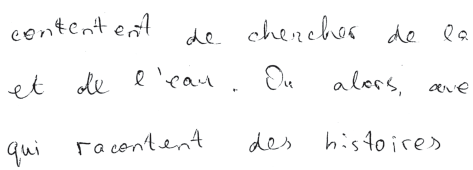 contentent de chercher de la
et de l'eau. Ou alors, ave
qui racontent des histoires